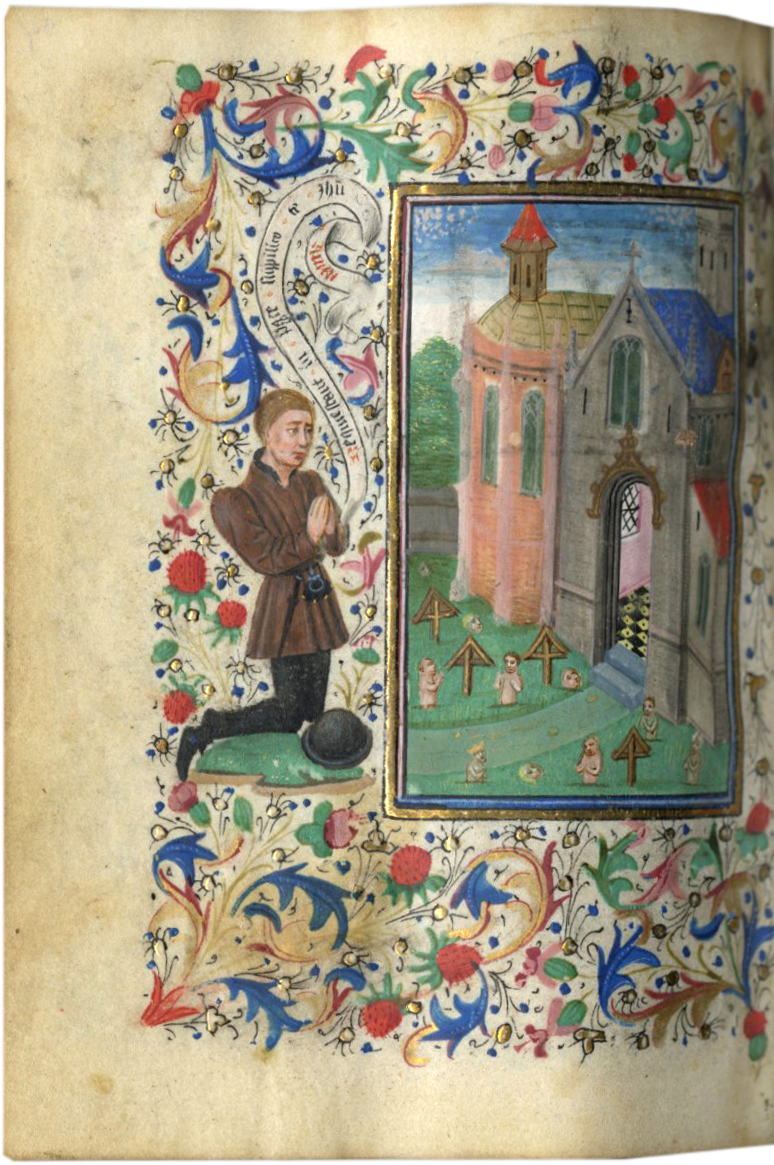 Requiescant · in · pace · supplico · te · ihu
Amen